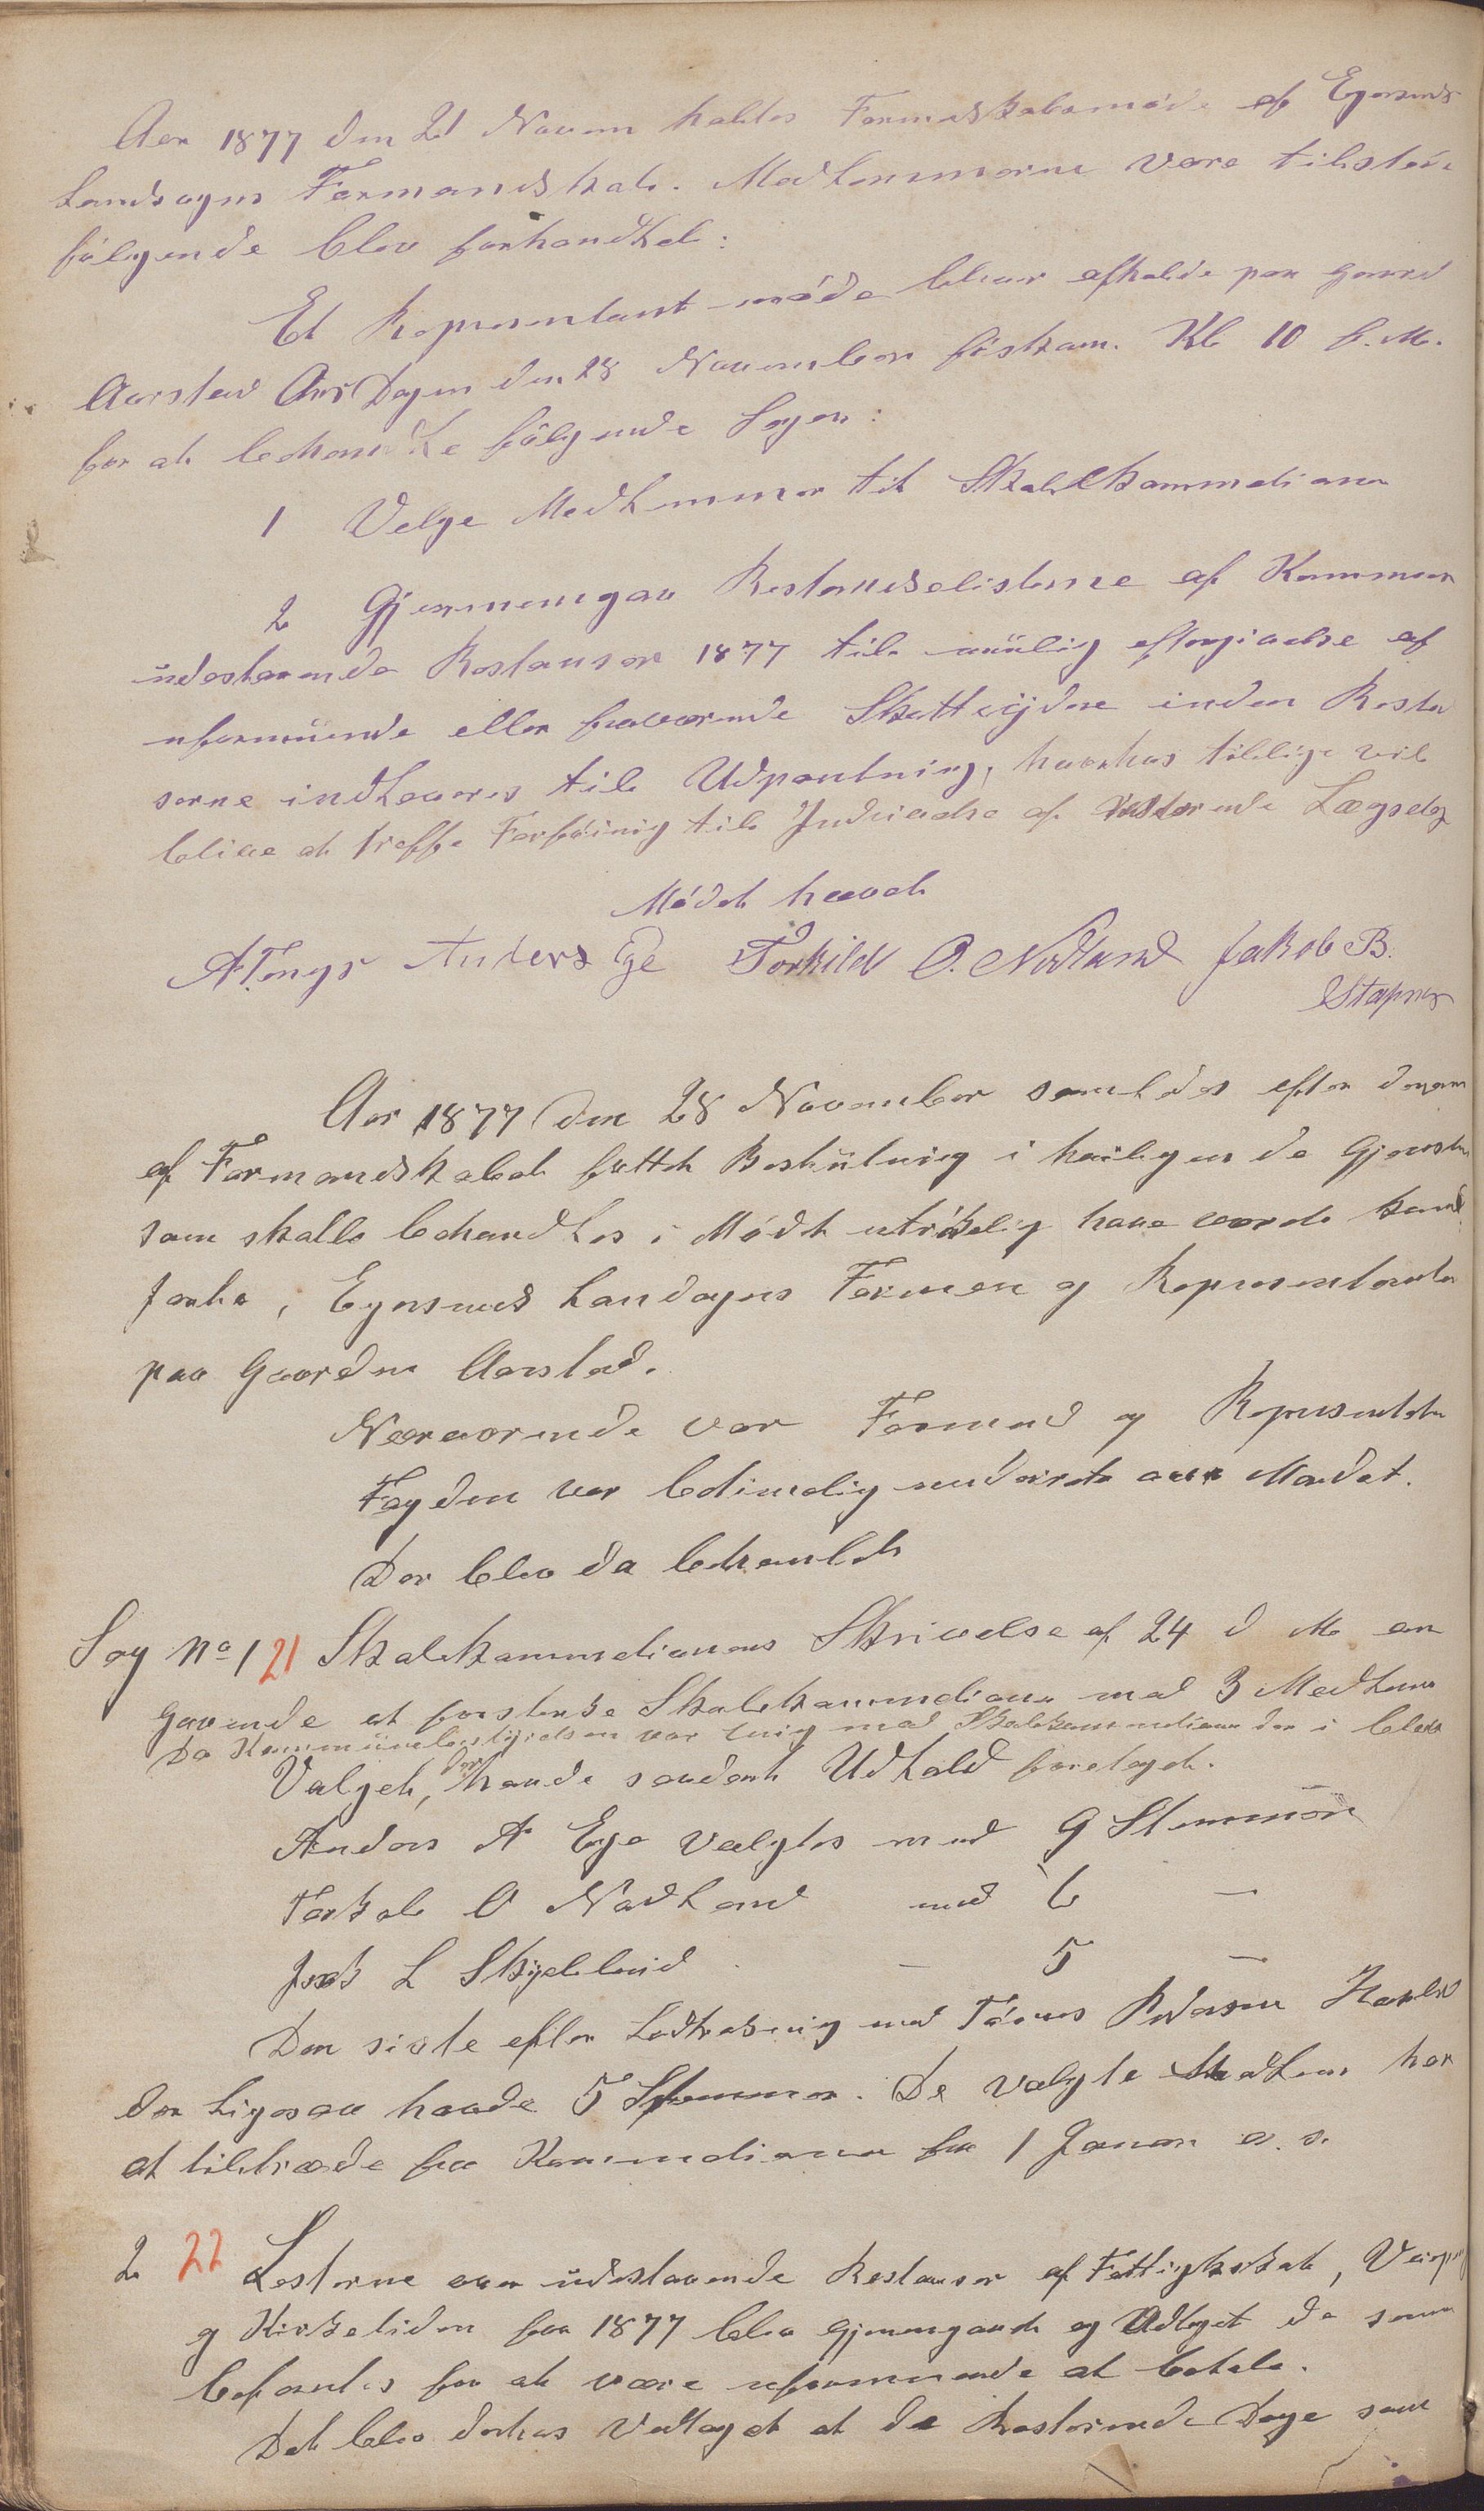 Aar 1877 den 21 Novem holdtes Formdskabsmøde af Egersunds
Landsogns Formandskab. Medlemmerne vare tilstede
følgende blev forhandlet:
Et Repræsentant møde bliver afholde paa gaard
Aarstad Ons Dagen den 28 November førstkom. Kl 10 f. M.
for at behandle følgende Sager:
1 Velge Medlemmer til Skolekommissionen
2 Gjennemgaa Restanselisterne af Kommun
udestaaende Restanser 1877 till muulig eftergivelse af
uformuende eller fraværende Skatteydere inden Restan
serne indleveres till Udpantning, hvorhos tillige vil
blive at træffe Forføinig till Indrivelse af resterende Lægsdg
Mødet hævet
A Tengs Anders Ege Torkild O. Nodland Jakob B.
Stapnes
Aar 1877 den 28 November samledes efter den
af Formandskabet fattet Beslutning i hvilgen de Gjenst
som skulle behandles i Mødet utrykelig have været kund
jorte, Egersunds Landsogns Formen og Repræsentanter
paa Gaarden Aarstad.
Nærværende var Formend og Represententer
Fogden var betimelig underrettet om Mødet.
Der blev da behandlet
Sag No 1 21 Skolekommissionens Skrivelse af 24 d M an
gaaende at forsterke Skolekommissionen med 3 Medlem
Da Kommunebestyrelsen var enig med Skolekommissionen der i blev
Valget, der havde saadant Udfald foretaget.
Anders A Ege valgtes med 9 Stemmer
Torkel O Nodland med 6 —
Jonas L Skjelbred — 5 —
Den siste efter Lodtrækning med Tønnes Pedersen
der ligesaa havde 5 Stemmer. De valgte Medlem har
at tiltræde fra Kommissionen fra 1 Januar n. s.
2 22 Listerne over udestaaende Restanser af Fattigskat, Veipeng
og Kirketiden for 1877 blev gjennemgaaet og Udtaget de som
befantes for at være uformuende at betale.
Det blev derhos Vedtaget at de Resterende Dage som